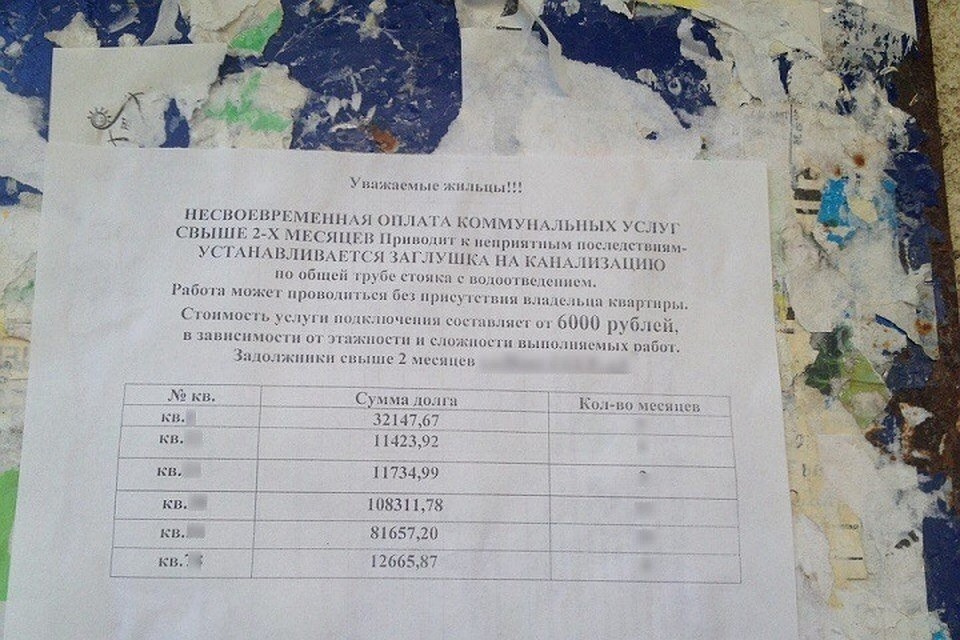 Уважаемые жильцы!!!
НЕСВОЕВРЕМЕННАЯ ОПЛАТА КОММУНАЛЬНЫХ УСЛУГ
СВЫШЕ 2-Х МЕСЯЦЕВ Приводит к неприятным последствиям-
УСТАНАВЛИВАЕТСЯ ЗАГЛУШКА НА КАНАЛИЗАЦИЮ
по общей трубе стояка с водоотведением.
Работа может проводиться без присутствия владельца квартиры.
Стоимость услуги подключения составляет от 6000 рублей,
в зависимости от этажности и сложности выполняемых работ.
Задолжники свыше 2 месяцев
№ кв. Сумма долга Кол-во месяцев
кв. 32147,67
кв. 11423,92
кв. 11734,99
кв. 108311,78
кв. 81657,20
кв. 12665,87